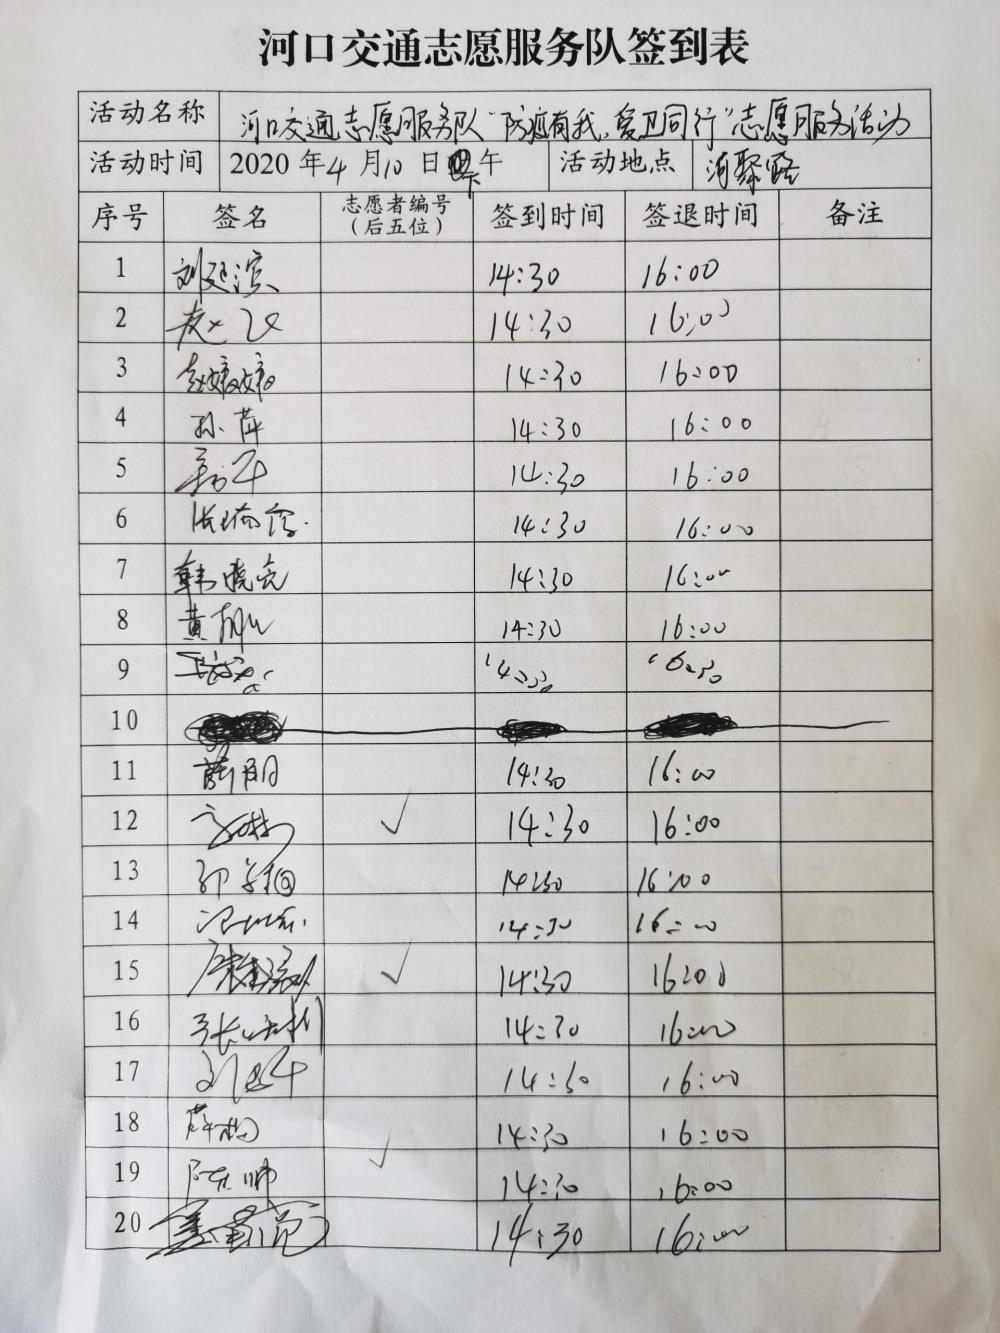 河口交通志愿服务队签到表
活动名称 河口交通志愿服务队“防疫有我,爱卫同行”志愿服务活动
活动时间 2020年4月10日下午 活动地点 河聚路
序号 签名 志愿者编号(后五位) 签到时间 签退时间 备注
1 刘廷滨 14:30 16:00
2 赵飞 14:30 16:00
3 14:30 16:00
4 孙萍 14:30 16:00
5 14:30 16:00
6 14:30 16:00
7 韩晓亮 14:30 16:00
8 黄 14:30 16:00
9 14:30 16:30
10
11 14:30 16:00
12 ✓ 14:30 16:00
13 14:30 16:00
14 14:30 16:00
15 ✓ 14:30 16:00
16 张 14:30 16:00
17 刘 14:30 16:00
18 薛 14:30 16:00
19 陈 帅 ✓ 14:30 16:00
20 14:30 16:00